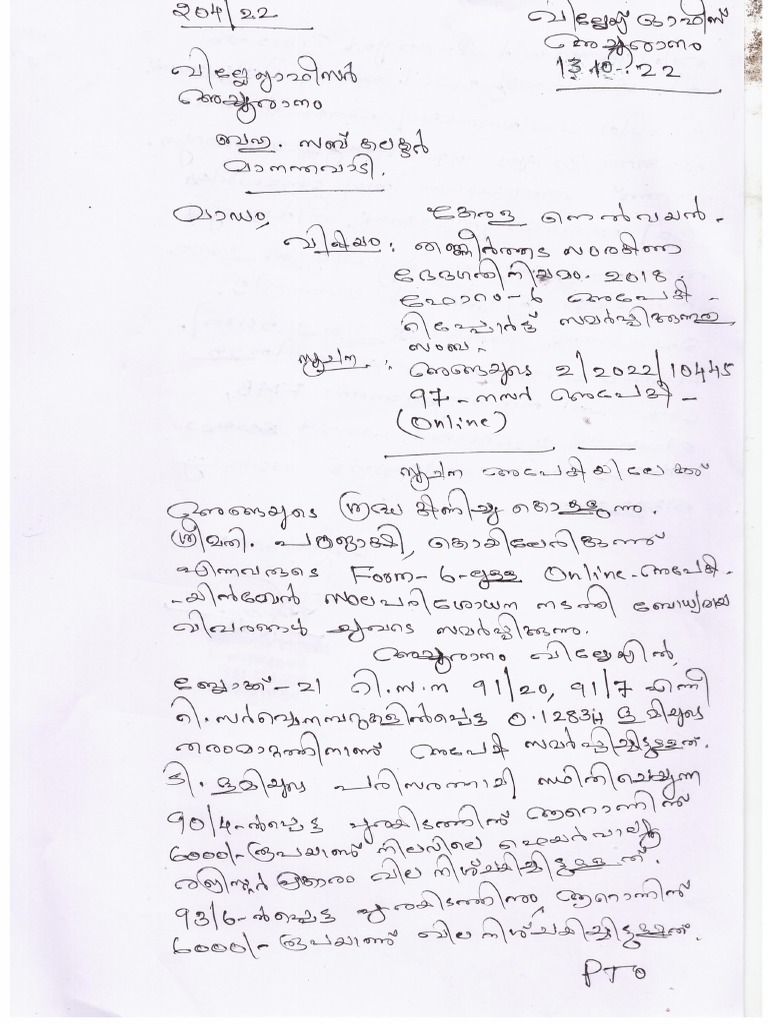 204/22
വില്ലേജ് ഓഫീസ്
അച്ചൂരാനം
13.10.22
വില്ലേജാഫീസർ
അച്ചൂരാനം
ബഹു. സബ് കലക്ടർ
മാനന്തവാടി.
മാഡം,
കേരള നെൽവയൽ -
വിഷയം : തണ്ണീർത്തട സംരക്ഷണ
ഭേദഗതി നിയമം. 2018 :
ഫോറം-6 അപേക്ഷ -
റിപ്പോർട്ട് സമർപ്പിക്കുന്നത്
സംബ -
സൂചന : അങ്ങയുടെ 2/2022/10445
97 - നമ്പർ അപേക്ഷ -
(Online)
സൂചന അപേക്ഷയിലേക്ക്
അങ്ങയുടെ ശ്രദ്ധ ക്ഷണിച്ചു കൊള്ളുന്നു.
ശ്രീമതി. പങ്കജാക്ഷി,
എന്നവരുടെ Form-6-ലുള്ള Online-അപേക്ഷ-
-യിൻമേൽ സ്ഥലപരിശോധന നടത്തി ബോധ്യമായ
വിവരങ്ങൾ ചുവടെ സമർപ്പിക്കുന്നു.
അച്ചൂരാനം വില്ലേജിൽ,
ബ്ലോക്ക്-21 റി.സ.ന 91/20, 91/7 എന്നീ
റി.സർവ്വെനമ്പറുകളിൽപ്പെട്ട 0.1283H ഭൂമിയുടെ
തരംമാറ്റത്തിനാണ് അപേക്ഷ സമർപ്പിച്ചിട്ടുള്ളത്.
ടി. ഭൂമിയുടെ പരിസരത്തായി സ്ഥിതിചെയ്യുന്ന
90/4-ൽപ്പെട്ട പുരയിടത്തിന് ആറൊന്നിന്
6000/- രൂപയാണ് നിലവിലെ ഫെയർവാല്യൂ
രജിസ്റ്റർ പ്രകാരം വില നിശ്ചയിച്ചിട്ടുള്ളത്.
93/6-ൽപ്പെട്ട പുരയിടത്തിനും ആറൊന്നിന്
6000/- രൂപയാണ് വില നിശ്ചയിച്ചിട്ടുള്ളത്.
PTO